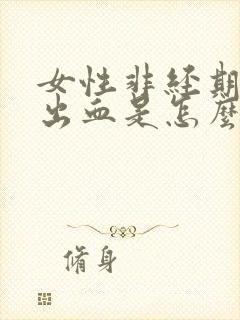 女性非经期
出血是怎麼
脩身